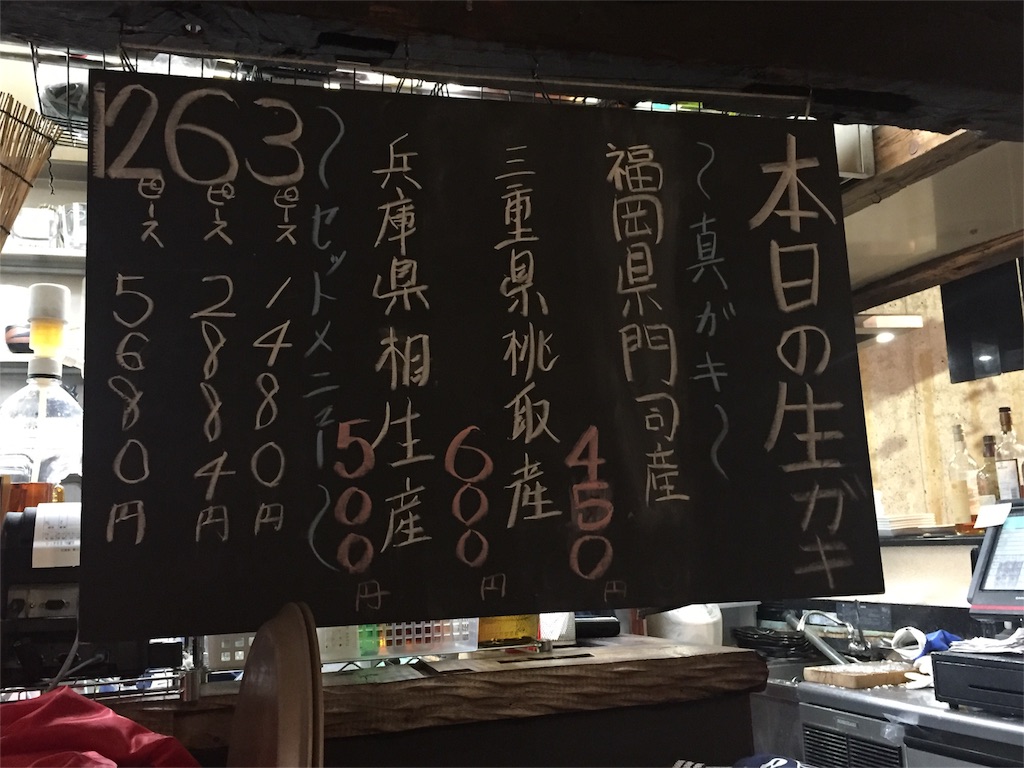 本日の生ガキ
〜真ガキ〜
福岡県門司産
450円
三重県桃取産
600円
兵庫県相生産
500円
〜セットメニュー〜
3ピース 1480円
6ピース 2884円
12ピース 5680円